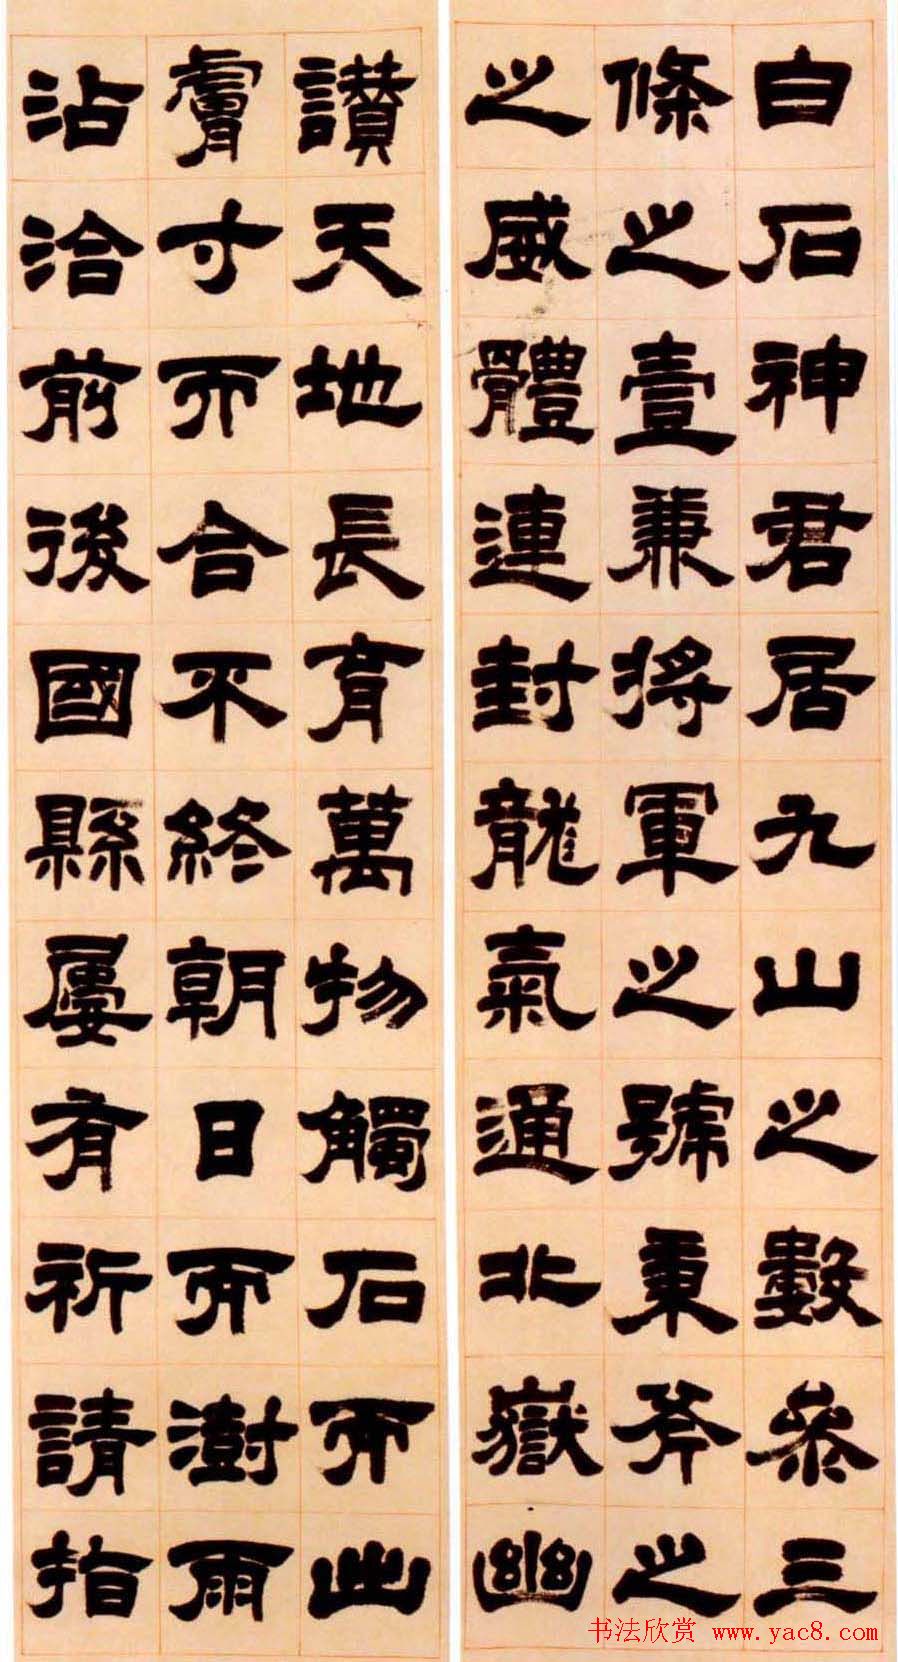 白石神君居九山之數參三
條之壹兼將軍之號秉斧之
之威體連封龍氣通北嶽幽
讚天地長育萬物觸石而此
膚寸而合不終朝日而澍雨
沾洽前後國縣屢有祈請指
书法欣赏 www.yac8.com